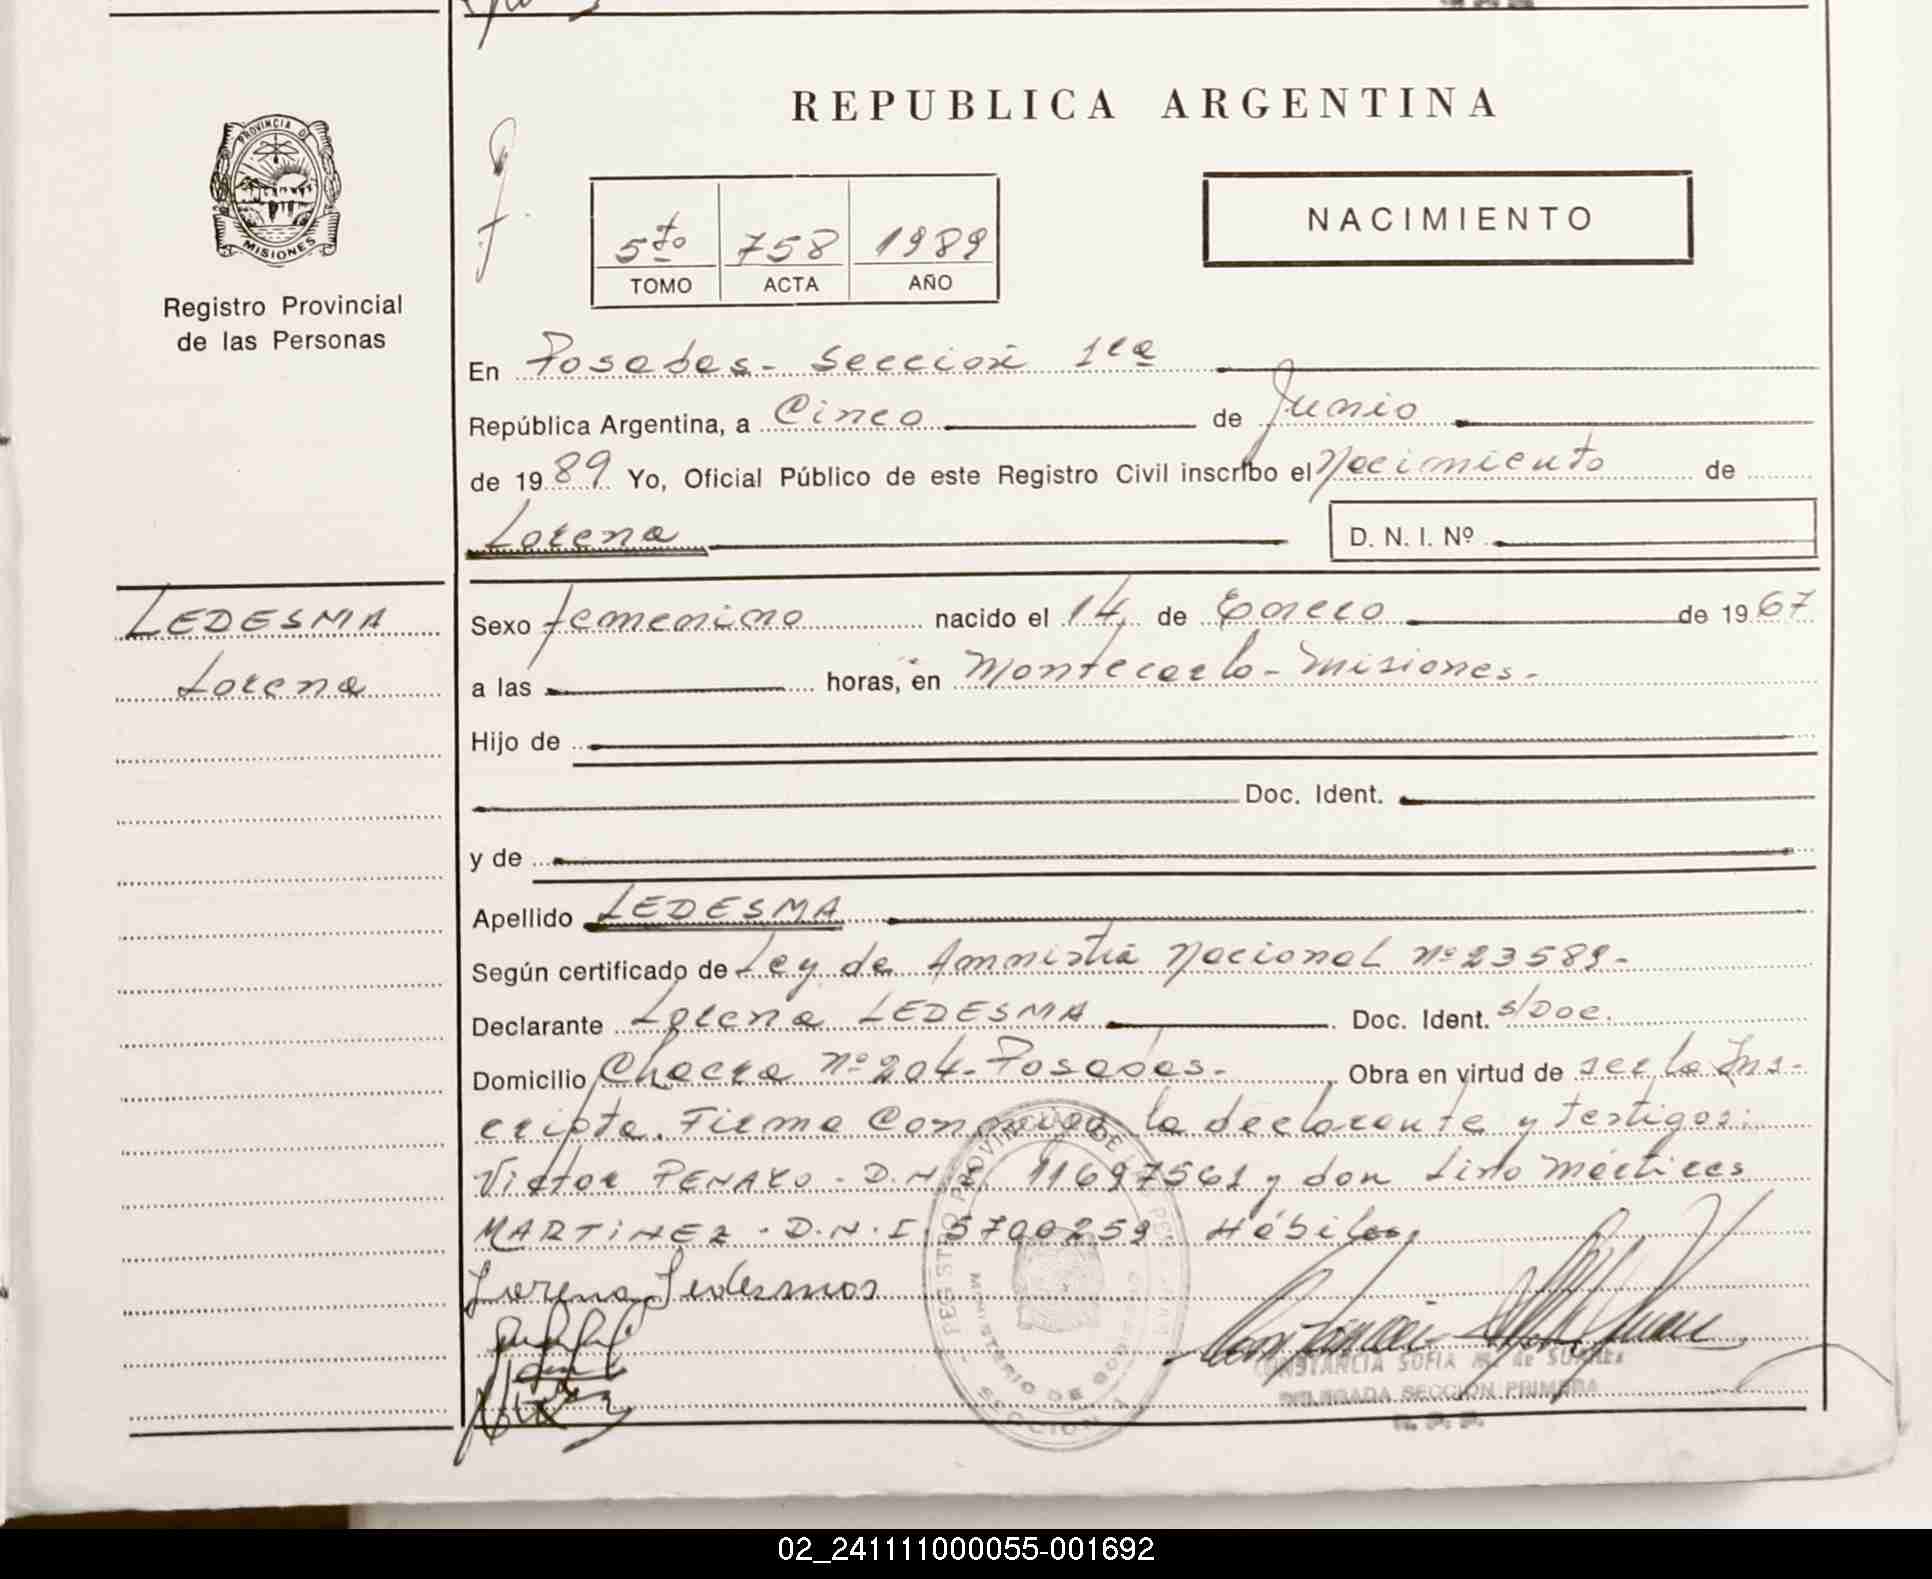 REPUBLICA ARGENTINA
PROVINCIA DE
MISIONES
Registro Provincial
de las Personas
5to 758 1989
TOMO ACTA AÑO
NACIMIENTO
En Posadas - Sección 1ra
República Argentina, a Cinco de Junio
de 1989 Yo, Oficial Público de este Registro Civil inscribo el Nacimiento de
Lorena D. N. I. Nº
LEDESMA
Lorena
Sexo femenino nacido el 14 de Enero de 1967
a las horas, en Montecarlo - Misiones.-
Hijo de
Doc. Ident.
y de
Apellido LEDESMA
Según certificado de Ley de Amnistía Nacional Nº 23589-
Declarante Lorena LEDESMA Doc. Ident. s/Doc.
Domicilio Chacra Nº 204- Posadas.- Obra en virtud de ser la Ins-
cripta. Firma Conmigo la declarante y testigos:
Victor PENAYO - D.N.I. 11697561 y don Lino Mártires
MARTINEZ - D.N.I. 5700259 Hábiles,
Lorena Ledesmos
REGISTRO PROVINCIAL DE LAS PERSONAS
MINISTERIO DE GOBIERNO
SECCION 1
CONSTANCIA SOFIA M. de SUAREZ
DELEGADA SECCION PRIMERA
R. P. P.
02_241111000055-001692